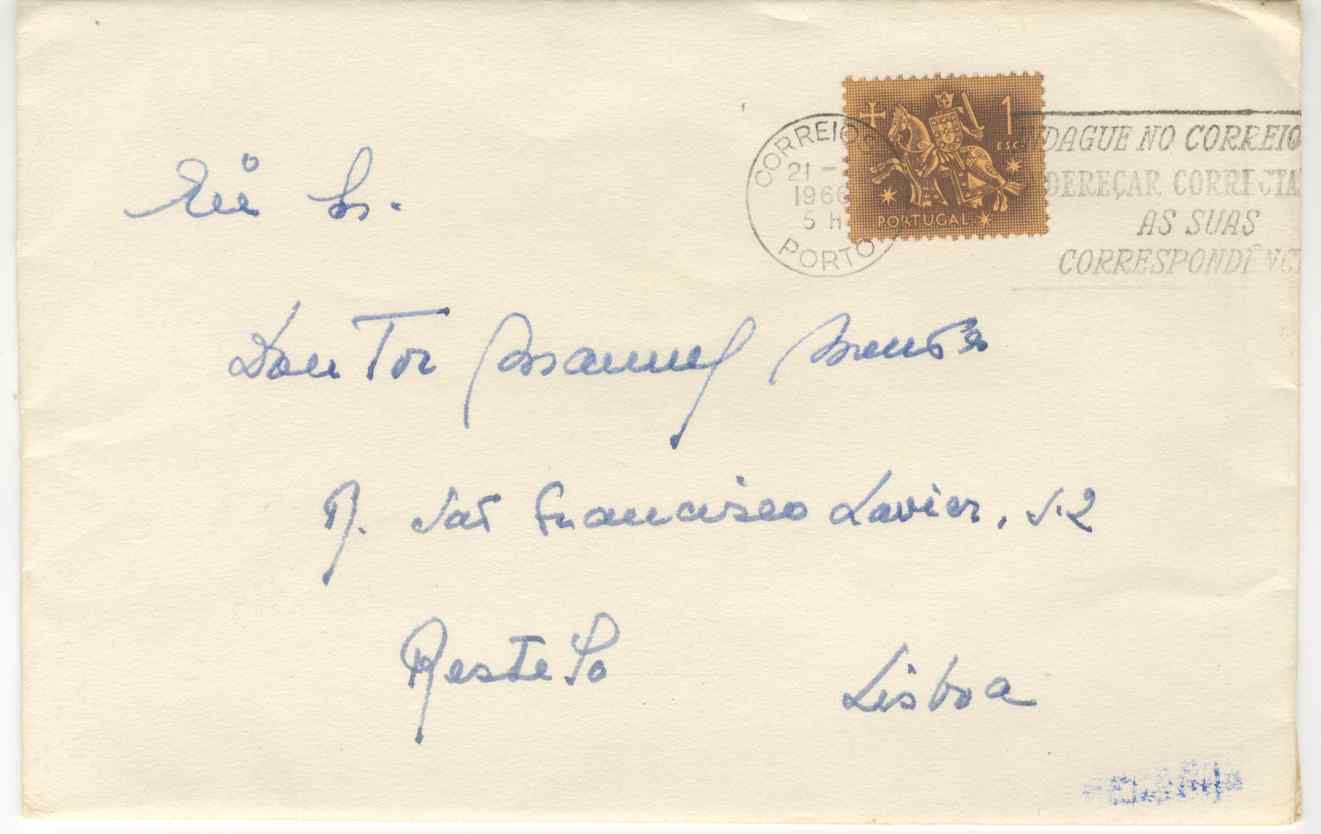 CORREIO
21 -
1966
5 H
PORTO
1
ESC.
PORTUGAL
DAGUE NO CORREIO
DEREÇAR CORRECTA
AS SUAS
CORRESPONDÊNC
Sr.
Doutor Manuel
R. São Francisco Xavier, 52
Restelo Lisboa